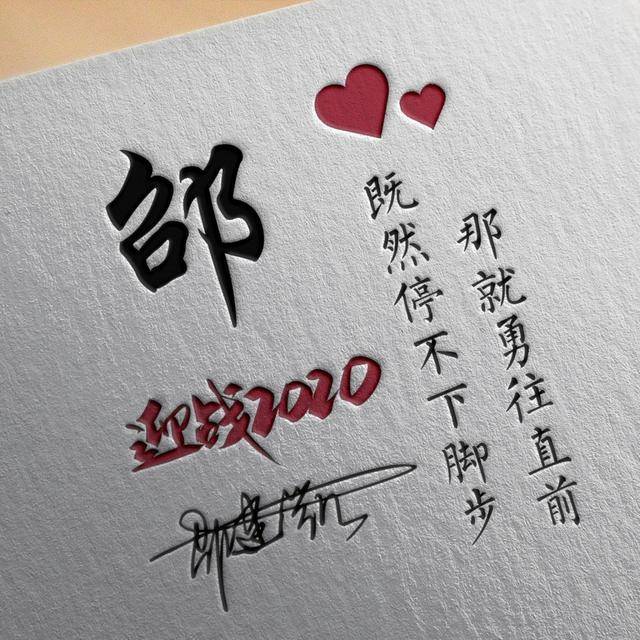 邵
既然停不下脚步
那就勇往直前
迎战2020